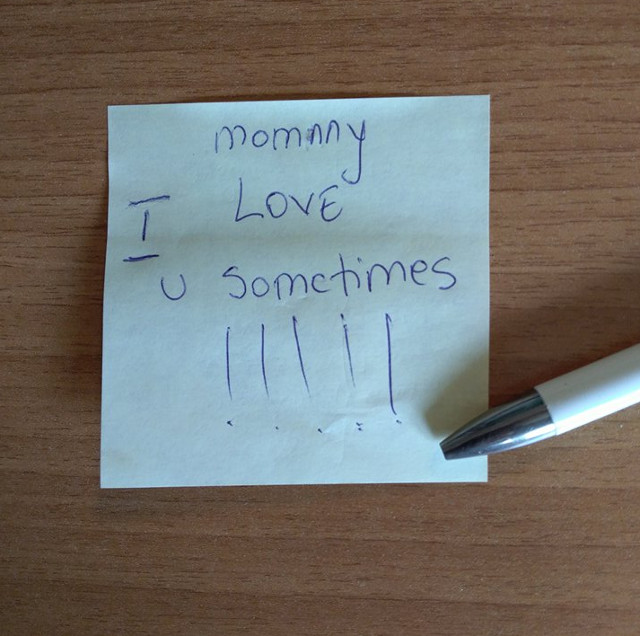 mommy
I LOVE
U sometimes
!!!!!